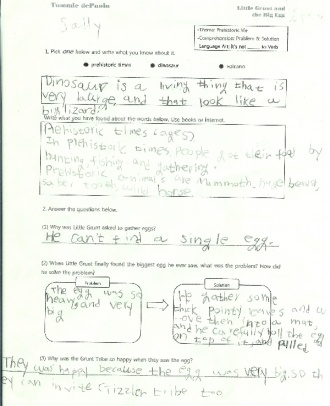 Tommie dePaola
Little Grunt and
the Big Egg
Sally
-Theme: Prehistoric life
-Comprehension: Problem & Solution
Language Art: It's not ____ to Verb
1. Pick one below and write what you know about it.
● prehistoric times ● dinosaur ● volcano
Dinosaur is a living thing that is
very large, and that look like a
big lizard.
Write what you have found about the words below. Use books or internet.
Prehistoric times (ages)
In prehistoric times, people got their food by
hunting, fishing and gathering.
Prehistoric animals are Mammoth, huge beaver,
saber tooth, wild horse
2. Answer the questions below.
(1) Why was Little Grunt asked to gather eggs?
He can't find a single egg.
(2) When Little Grunt finally found the biggest egg he ever saw, what was the problem? How did
he solve the problem?
Problem
The egg was so
heavy and very
big
Solution
He gather some
thick pointy leaves and w
ove then into a mat,
and he carefully roll the egg
on top of it. he pulled
(3) Why was the Grunt Tribe so happy when they saw the egg?
They was happy because the egg was very big, so th
ey can invite Grizzler tribe too